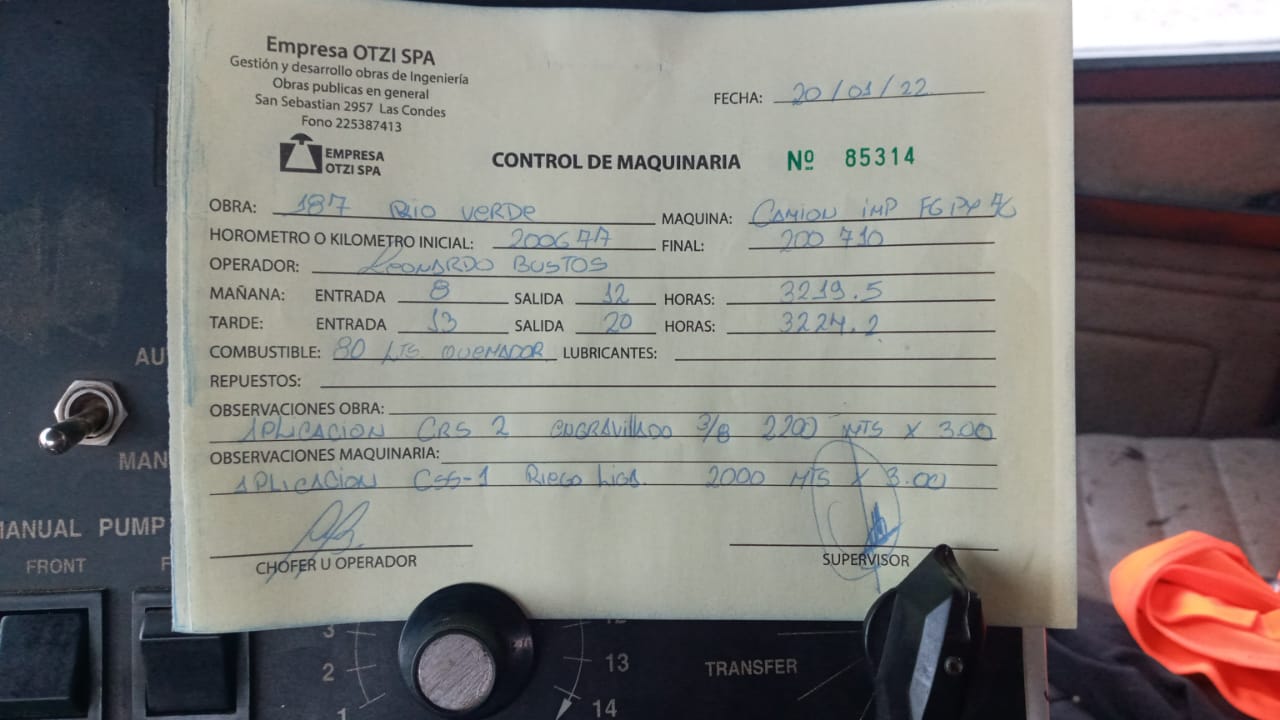 Empresa OTZI SPA
Gestión y desarrollo obras de Ingeniería
Obras publicas en general
San Sebastian 2957 Las Condes
Fono 225387413
EMPRESA
OTZI SPA
FECHA: 20/01/22
CONTROL DE MAQUINARIA Nº 85314
OBRA: 187 Rio Verde MAQUINA: Camion imp
HOROMETRO O KILOMETRO INICIAL: 200677 FINAL: 200710
OPERADOR: Leonardo Bustos
MAÑANA: ENTRADA 8 SALIDA 12 HORAS: 3219.5
TARDE: ENTRADA 13 SALIDA 20 HORAS: 3224.2
COMBUSTIBLE: 80 LTS. QUEMADOR LUBRICANTES:
REPUESTOS:
OBSERVACIONES OBRA:
APLICACION CRS 2 ENGRAVILLADO 3/8 2200 MTS X 3.00
OBSERVACIONES MAQUINARIA:
APLICACION CSS-1 Riego Liga 2000 MTS X 3.00
CHOFER U OPERADOR SUPERVISOR
AU
MAN
MANUAL PUMP
FRONT F
3
2
1
12
13
14
TRANSFER